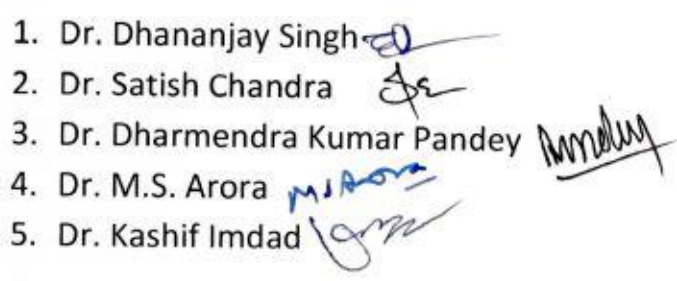 1. Dr. Dhananjay Singh
2. Dr. Satish Chandra
3. Dr. Dharmendra Kumar Pandey
4. Dr. M.S. Arora MS Arora
5. Dr. Kashif Imdad